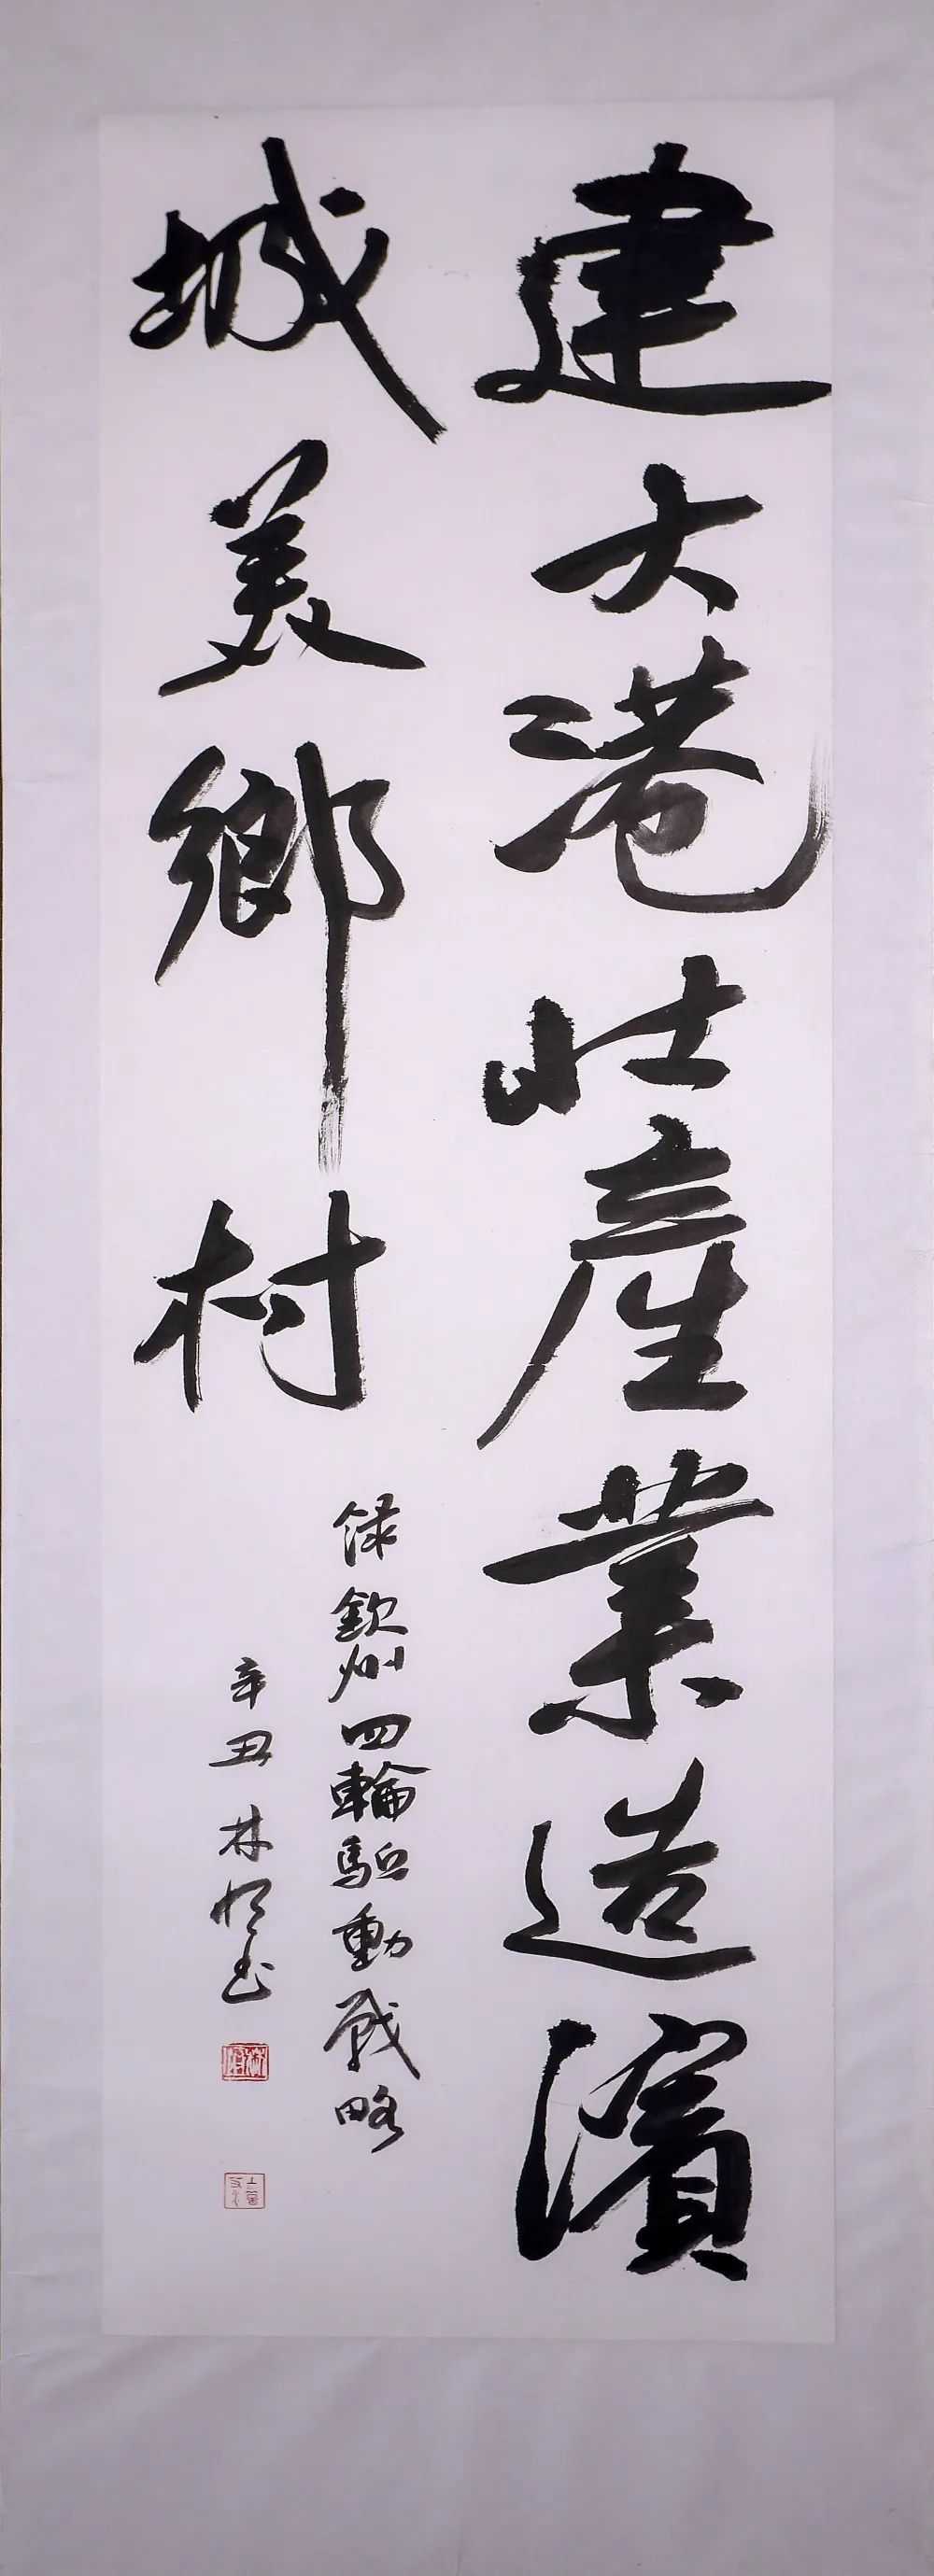 建大港壯產業造濱
城美鄉村
錄欽州四輪駆動戰略
辛丑 林恒書